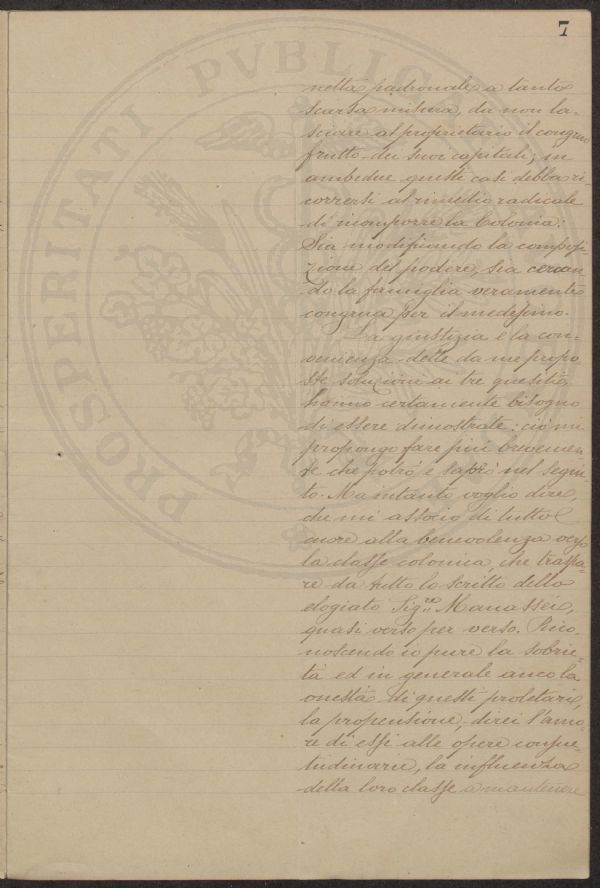 7
PROSPERITATI PVBLICAE
netta padronale, a tanto
scarsa misura, da non la-
sciare al proprietario il congruo
frutto dei suoi capitali; in
ambedue questi casi debba ri-
correrli al rimedio radicale
di ricomporre la Colonia:
Sia modificando la compofi-
zione del podere, sia cercan
do la famiglia veramente
congrua per il medesimo.
La giustizia e la con-
venienza delle da me propo
ste soluzioni ai tre quesiti,
hanno certamente bisogno
di essere dimostrate: ciò mi
propongo fare più brevemen
te che potrò e saprò nel segui
to. Ma intanto voglio dire,
che mi associo di tutto
cuore alla benevolenza verso
la classe colonica, che traspa-
re da tutto lo scritto dello
elogiato Sig.re Manassei,
quasi verso per verso. Rico-
noscendo io pure la sobrie-
tà ed in generale anco la
onestà di questi proletari,
la propensione, direi l'amo-
re di essi alle opere consue-
tudinarie, la influenza
della loro classe a mantenere